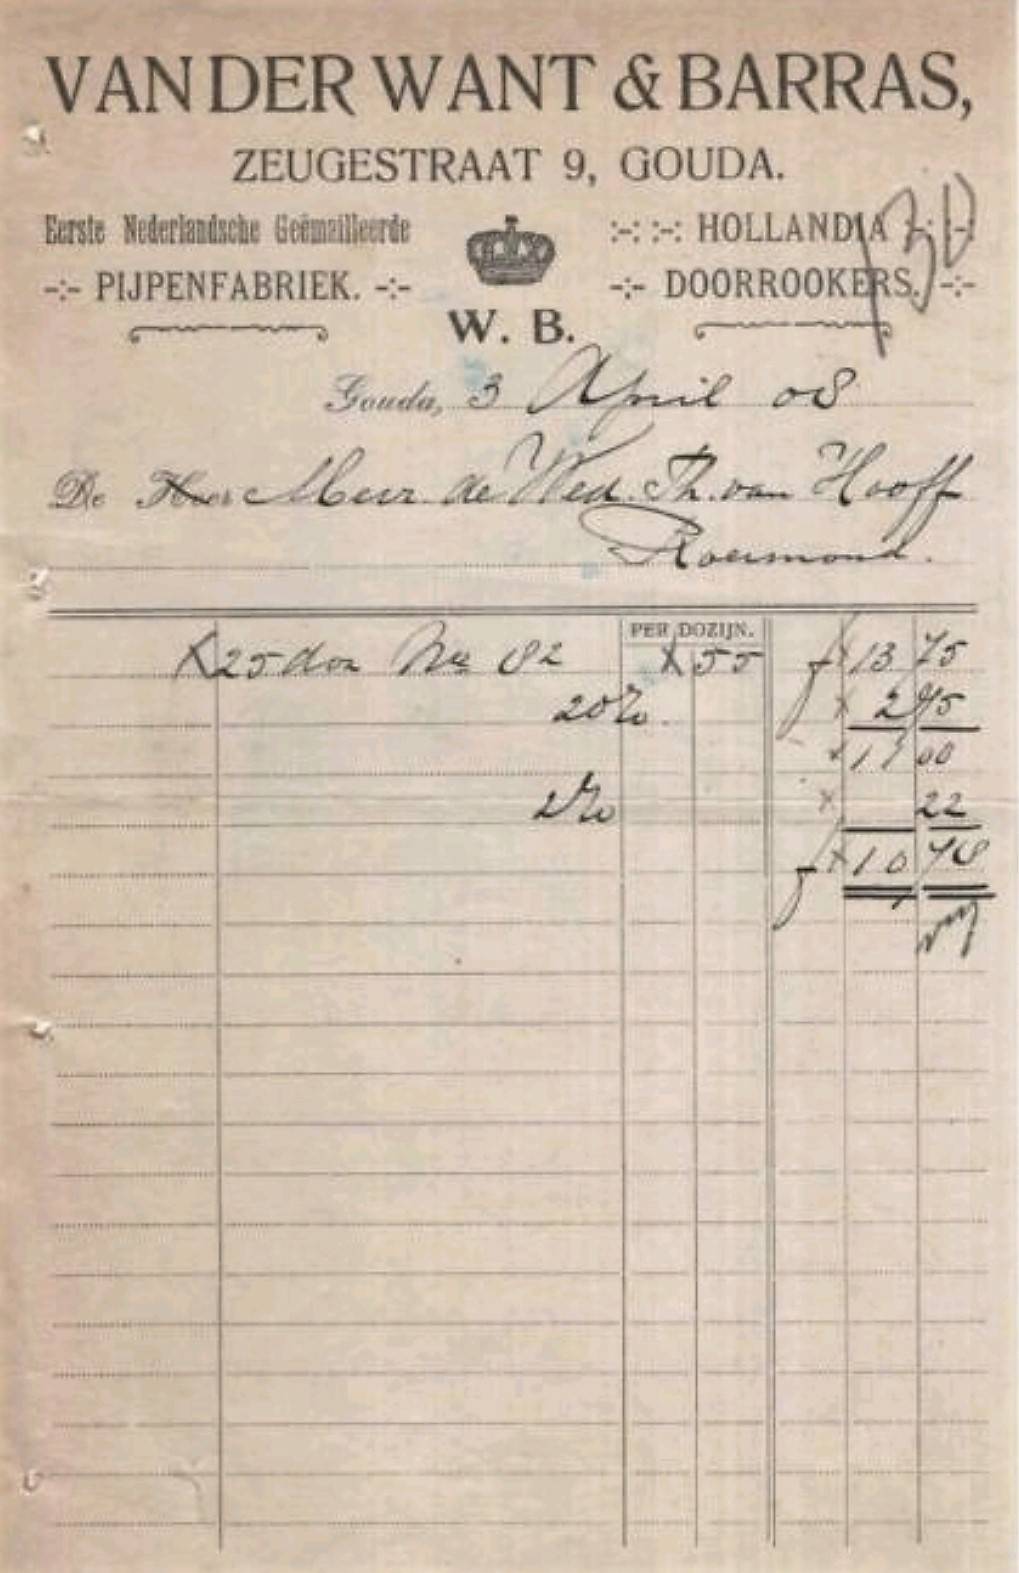 VAN DER WANT & BARRAS,
ZEUGESTRAAT 9, GOUDA.
Eerste Nederlandsche Geëmailleerde
-:- PIJPENFABRIEK. -:-
W. B.
:-: :-: HOLLANDIA :-: :-:
-:- DOORROOKERS. -:-
Gouda, 3 April 08
De Heer Mevr de Wed. Th. van Hooff
Roermond.
PER DOZIJN.
25 doz No 82 55 f 13 75
20% 2 75
11 00
2% 22
f 10 78